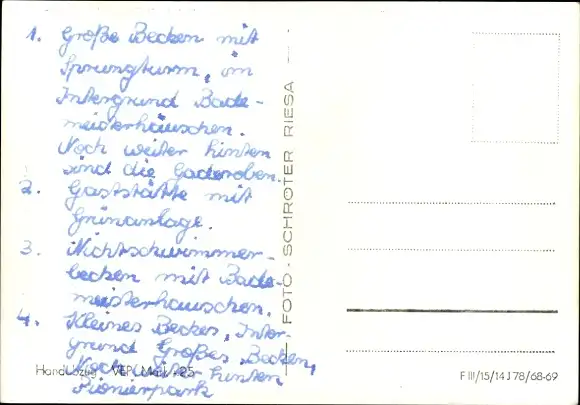 1. Große Becken mit
Sprungturm, im
Intergrund Bade-
meisterhäuschen.
Noch weiter hinten
sind die Gaderoben.
2. Gaststätte mit
Grünanlage.
3. Nichtschwimmer-
becken mit Bade-
meisterhäuschen.
4. Kleines Becken, Inter-
grund Großes Becken,
Noch hinten
Pionierpark
Handabzug VEP, Mark -.25
FOTO - SCHRÖTER RIESA
F III/15/14 J 78/68-69